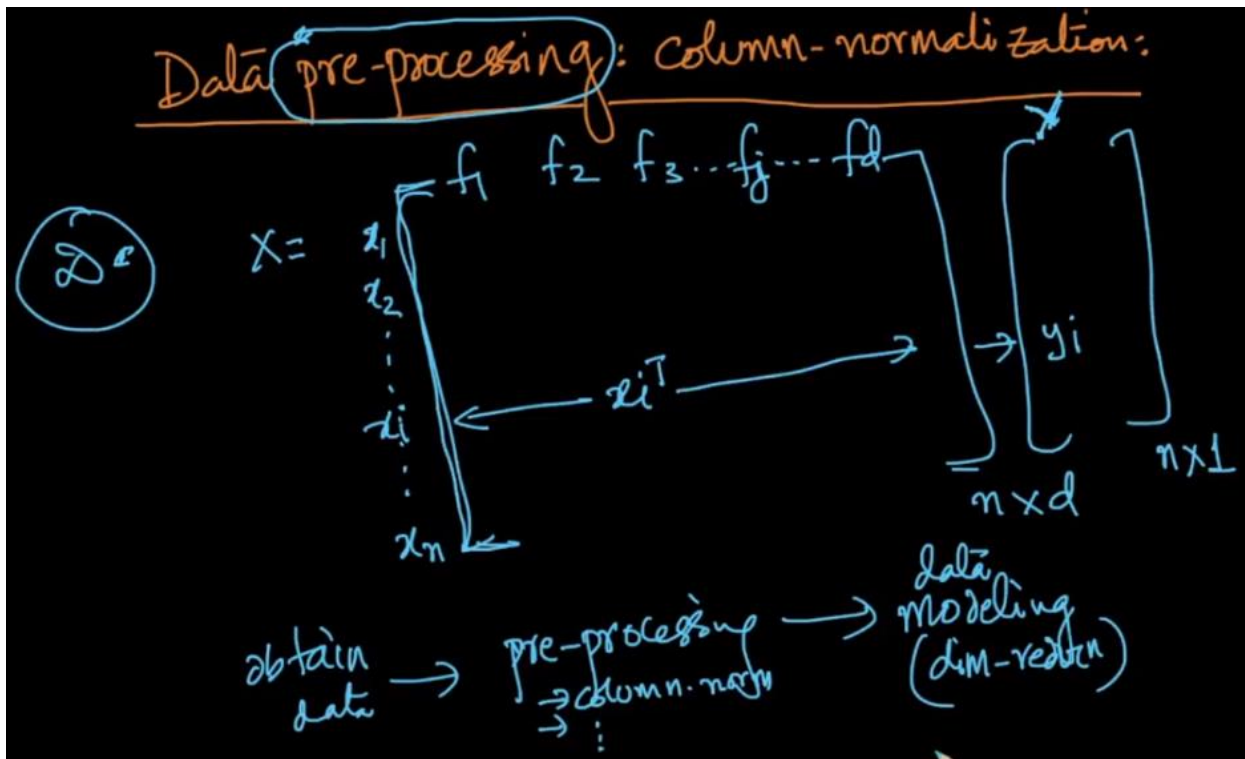 Data pre-processing: column-normalization:
f1 f2 f3...fj....fd
Y
D
X=
x1
x2
xi
xn
xiT
→ yi
n×d
n×1
obtain data → pre-processing → data modeling (dim-redtn)
→ column.norm
→ ⋮